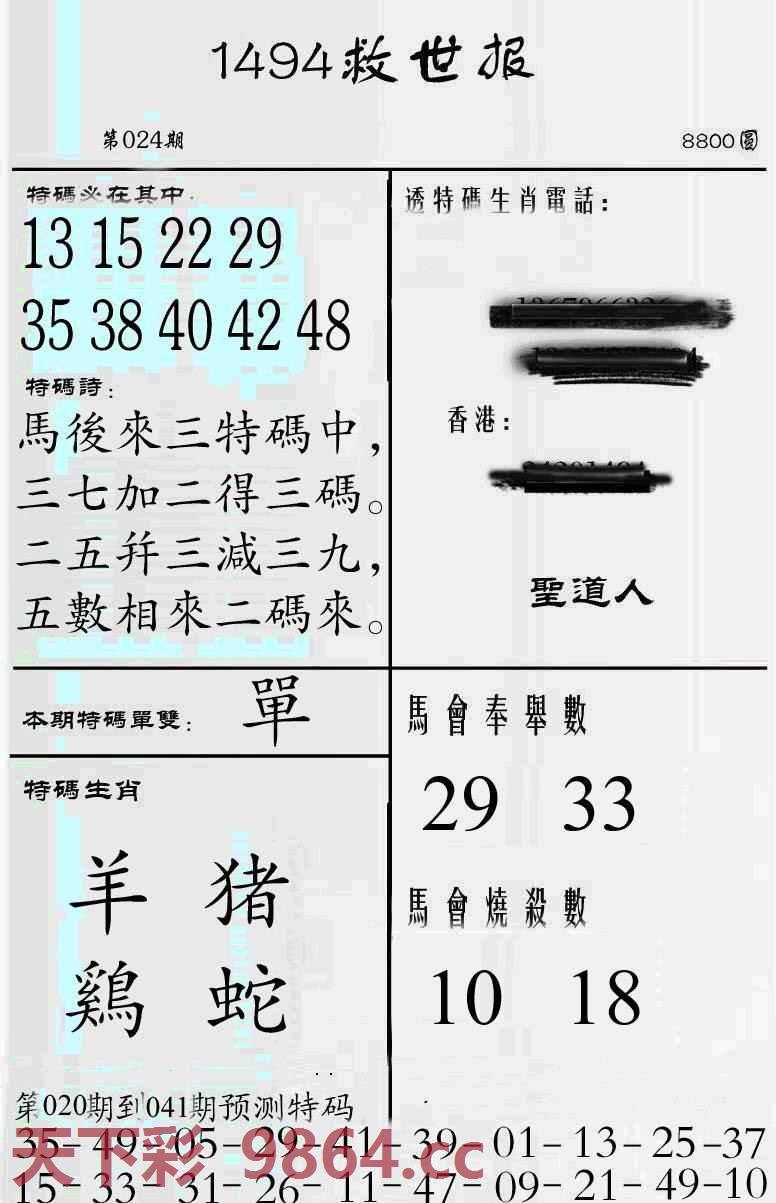 1494救世报
第024期
8800圆
特碼必在其中:
13 15 22 29
35 38 40 42 48
特碼詩:
馬後來三特碼中,
三七加二得三碼。
二五幷三減三九,
五數相來二碼來。
透特碼生肖電話:
香港:
聖道人
本期特碼單雙: 單
特碼生肖
羊 猪
鷄 蛇
馬會奉舉數
29 33
馬會燒殺數
10 18
第020期到041期预测特码
35-49-05-29-41-39-01-13-25-37
15-33-31-26-11-47-09-21-49-10
天下彩 9864.cc